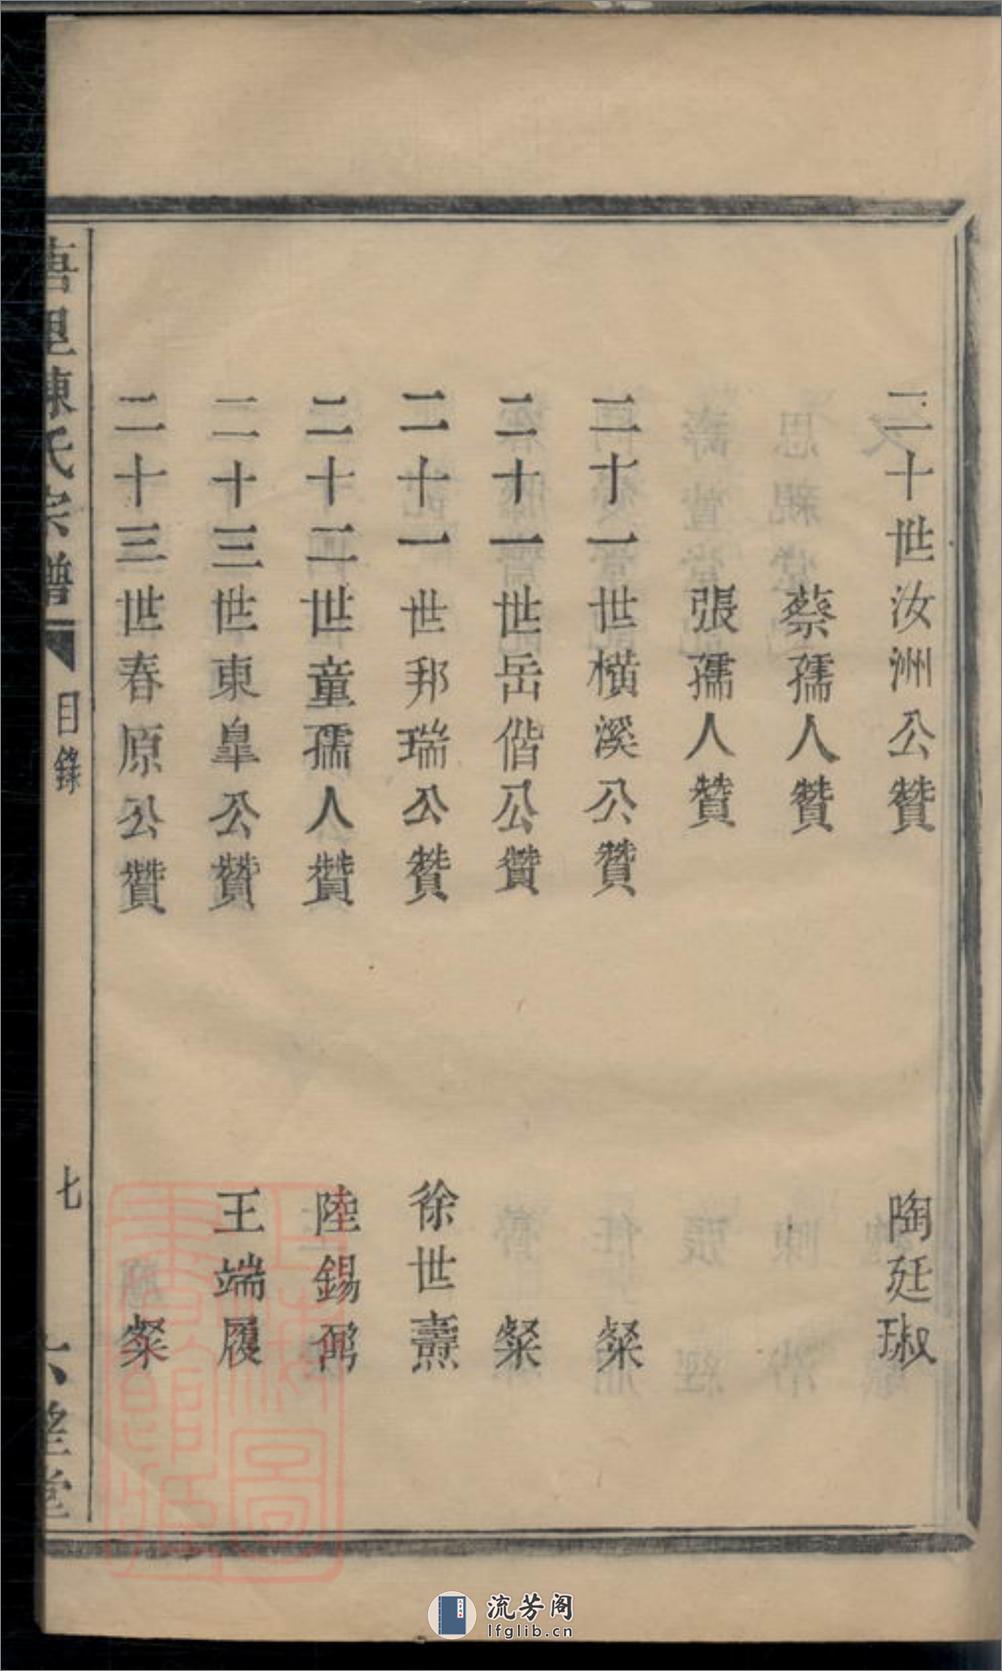 二十世汝洲公贊 陶廷琡
蔡孺人贊
張孺人贊
二十一世橫溪公贊 粲
二十一世岳偕公贊 粲
二十一世邦瑞公贊 徐世燾
二十二世童孺人贊 陸錫
二十三世東臯公贊 王端履
二十三世春原公贊 粲
里陳氏宗譜 目錄 七 堂
流芳阁
lfglib.cn